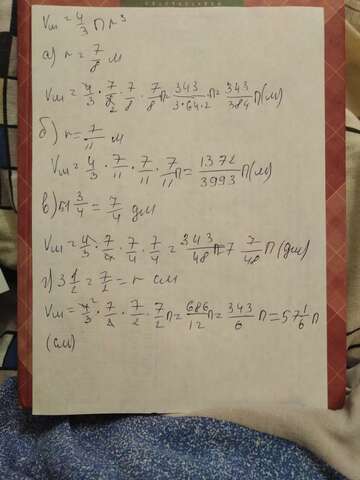 Vш = 4/3 П r³
а) r = 7/8 м
Vш = 4/3 · 7/8 · 7/8 · 7/8 П = 343/3·64·2 П = 343/384 П (м)
б) r = 7/11 м
Vш = 4/3 · 7/11 · 7/11 · 7/11 П = 1372/3993 П (м)
3/4 = 7/4 дм
Vш = 4/3 · 7/4 · 7/4 · 7/4 = 343/48 П = 7 7/48 П (дм)
г) 3 1/2 = 7/2 = r см
Vш = 4/3 · 7/2 · 7/2 · 7/2 П = 686/12 П = 343/6 П = 57 1/6 П
(см)